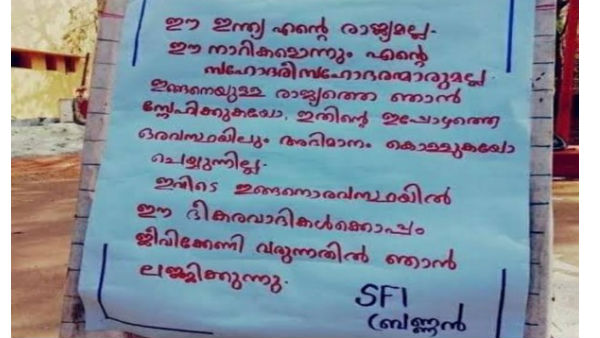 ഈ ഇന്ത്യ എന്റെ രാജ്യമല്ല.
ഈ നാറികളൊന്നും എന്റെ
സഹോദരീസഹോദരന്മാരുമല്ല.
ഇങ്ങനെയുള്ള രാജ്യത്തെ ഞാൻ
സ്നേഹിക്കുകയോ, ഇതിന്റെ ഇപ്പോഴത്തെ
ഒരവസ്ഥയിലും അഭിമാനം കൊള്ളുകയോ
ചെയ്യുന്നില്ല.
ഇവിടെ ഇങ്ങനൊരവസ്ഥയിൽ
ഈ ഭീകരവാദികൾക്കൊപ്പം
ജീവിക്കേണി വരുന്നതിൽ ഞാൻ
ലജ്ജിക്കുന്നു.
SFI
ബ്രണ്ണൻ